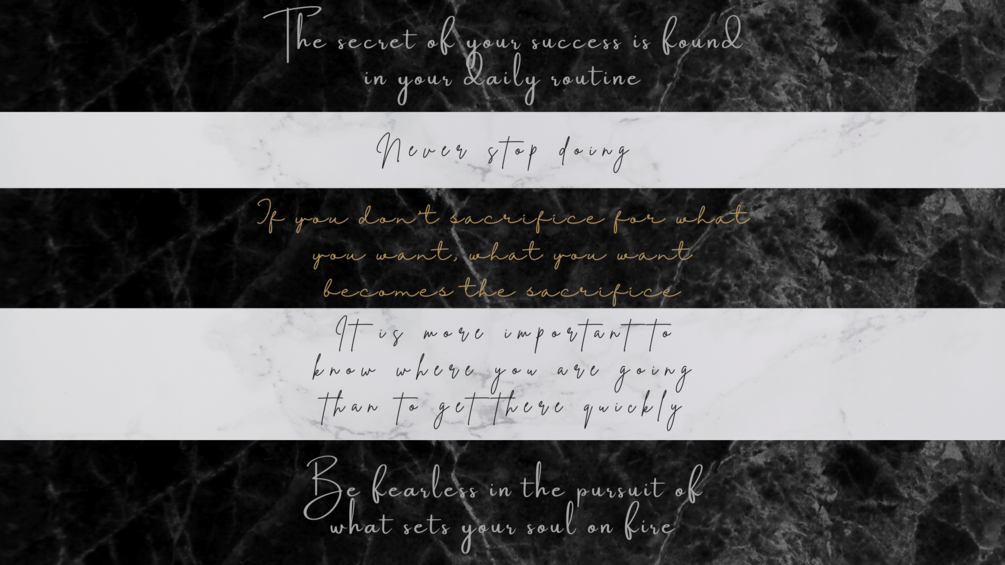 The secret of your success is found
in your daily routine
Never stop doing
If you don't sacrifice for what
you want, what you want
becomes the sacrifice
It is more important to
know where you are going
than to get there quickly
Be fearless in the pursuit of
what sets your soul on fire